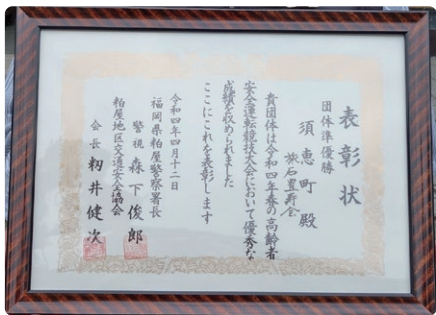 表彰状
団体準優勝
須恵町
旅石直寿会
殿
貴団体は令和四年春の高齢者
安全運転競技大会において優秀な
成績を収められました
ここにこれを表彰します
令和四年四月十二日
福岡県粕屋警察署長
警視 森下俊郎
粕屋地区交通安全協会
会長 籾井健次